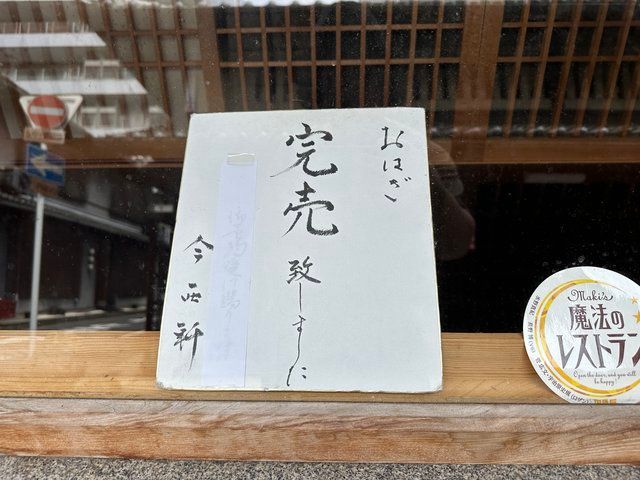 おはぎ
完売
致しました
今西軒
Maki's
魔法の
レストラン
Open the door, and you will
be happy!